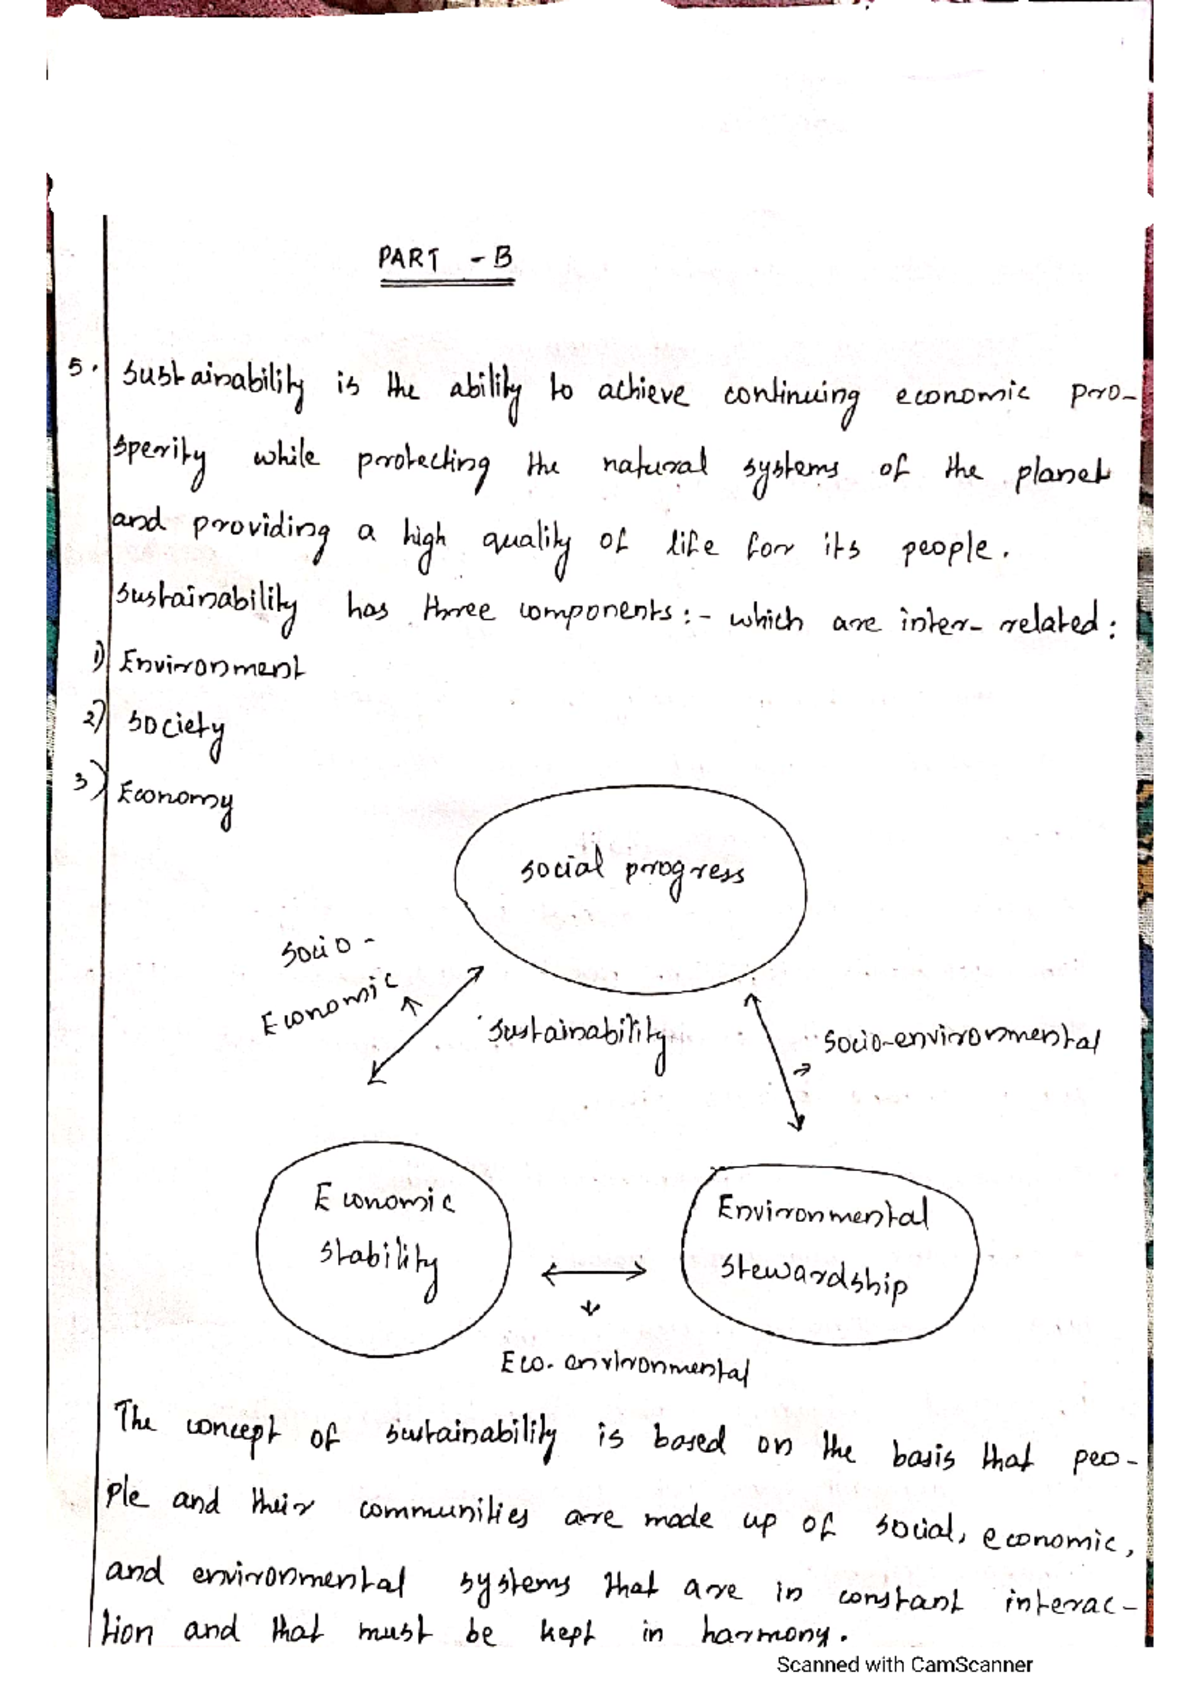 PART - B
5. Sustainability is the ability to achieve continuing economic pro-
sperity while protecting the natural systems of the planet
and providing a high quality of life for its people.
Sustainability has three components:- which are inter-related:
1) Environment
2) Society
3) Economy
Social progress
Socio-
Economic
Sustainability
Socio-environmental
Economic
stability
Environmental
stewardship
Eco-environmental
The concept of sustainability is based on the basis that peo-
ple and their communities are made up of social, economic,
and environmental systems that are in constant interac-
tion and that must be kept in harmony.
Scanned with CamScanner